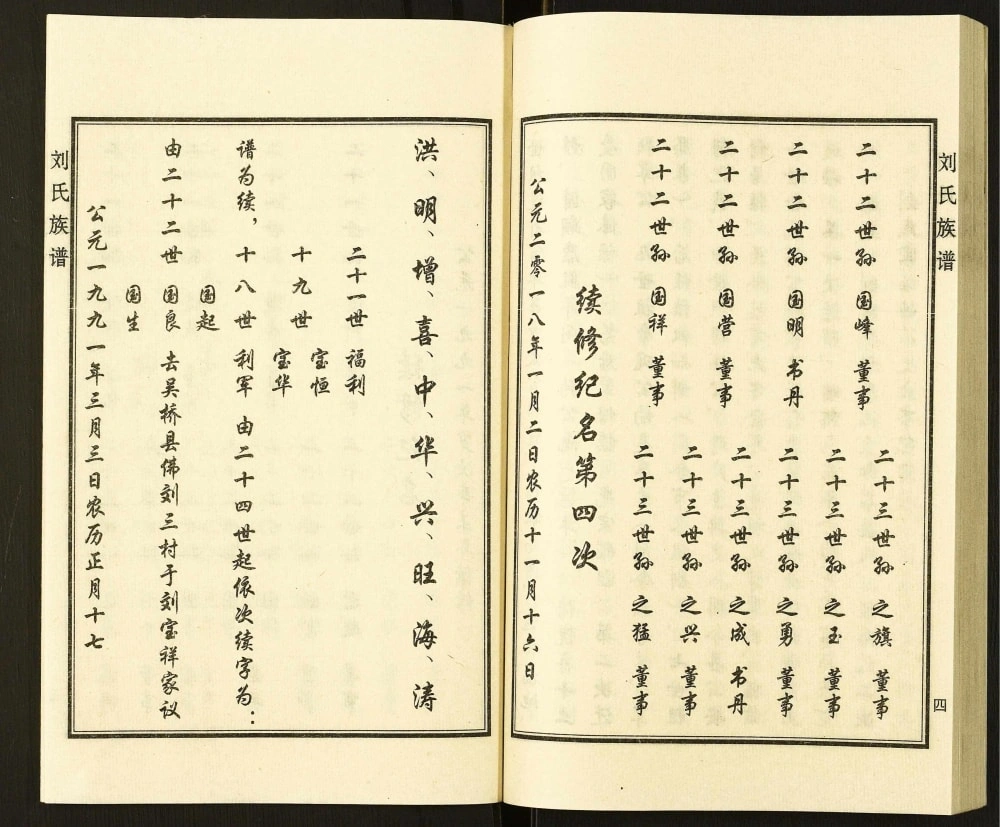 刘氏族谱
公元一九九一年三月三日农历正月十七
国生
由二十二世 国良 去吴桥县佛刘三村于刘宝祥家议
国起
谱为续，十八世 利军 由二十四世起依次续字为：
宝华
十九世
宝恒
二十一世 福利
洪、明、增、喜、中、华、兴、旺、海、涛
公元二零一八年一月二日农历十一月十六日
续修纪名第四次
二十二世孙 国祥 董事
二十二世孙 国营 董事
二十二世孙 国明 书丹
二十二世孙 国峰 董事
二十三世孙 之猛 董事
二十三世孙 之兴 董事
二十三世孙 之成 书丹
二十三世孙 之勇 董事
二十三世孙 之玉 董事
二十三世孙 之旗 董事
刘氏族谱
四